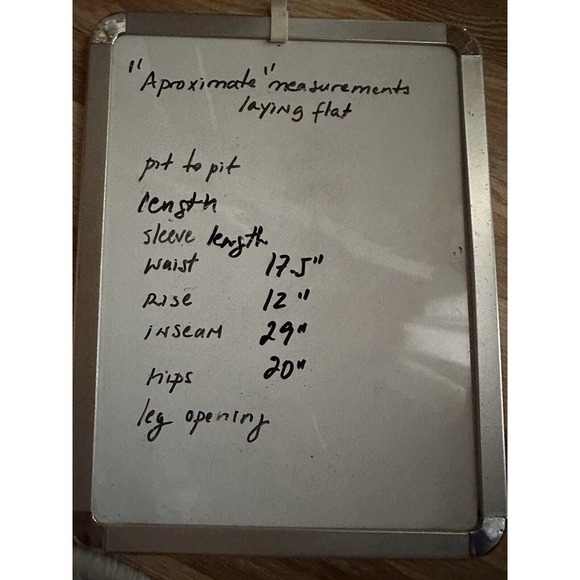 "Aproximate" measurements
laying flat
pit to pit
length
sleeve length
waist 17.5"
Rise 12"
inseam 29"
hips 20"
leg opening